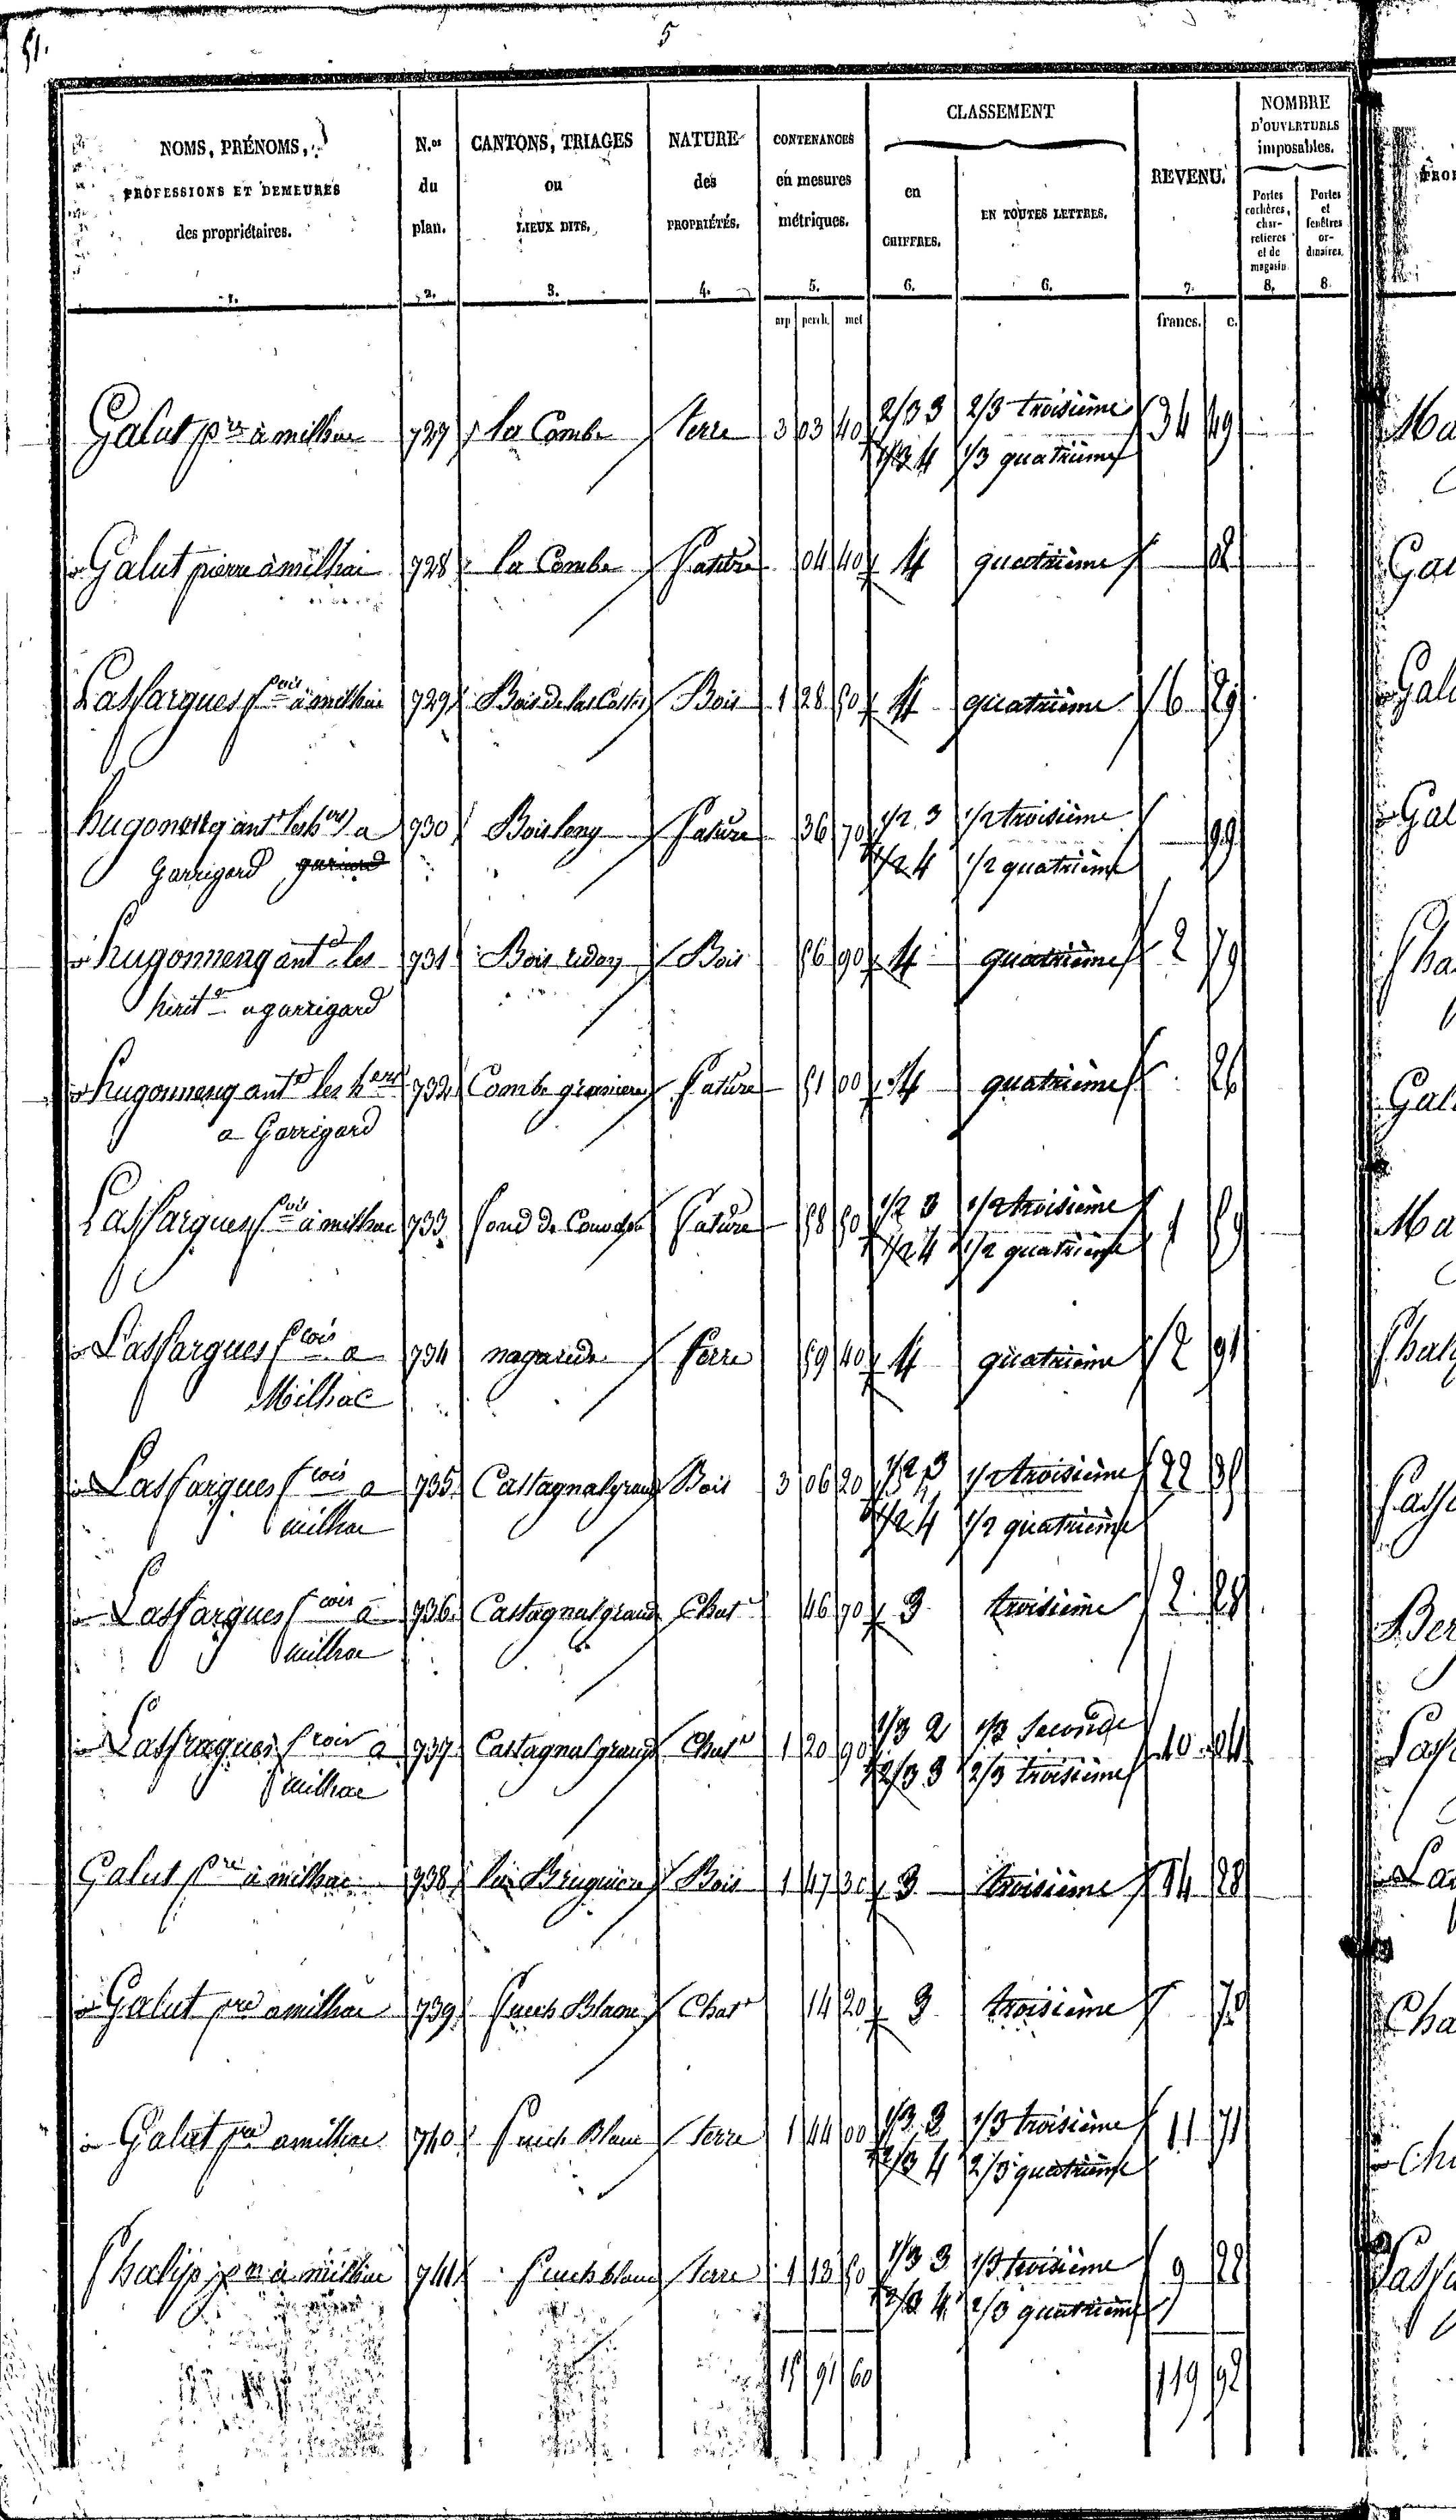 51.
5
NOMS, PRÉNOMS,
PROFESSIONS ET DEMEURES
des propriétaires.
1.
N.os
du
plan.
2.
CANTONS, TRIAGES
ou
LIEUX DITS.
3.
NATURE
des
PROPRIÉTÉS.
4.
CONTENANCES
en mesures
métriques.
5.
CLASSEMENT
en
CHIFFRES.
6.
EN TOUTES LETTRES.
6.
REVENU.
7.
NOMBRE
D'OUVERTURES
imposables.
Portes
cochères,
char-
retières
et de
magasin
8.
Portes
et
fenêtres
or-
dinaires.
8.
arp perch. met
francs. c.
Galut pre à milhac 727 la Combe terre 3 03 40 2/3 3 2/3 troisième 34 49
1/3 4 1/3 quatrième
Galut pierre à milhac 728 la Combe Pature 04 40 4 quatrième 02
Lassargues fcois à milhac 729 Bois de las Bois 1 28 50 4 quatrième 6 29
ant les hers a 730 Bois long Pature 36 70 1/2 3 1/2 troisième 99
Garrigard 1/2 4 1/2 quatrième
hugonneng ant les 731 Bois Bois 56 90 4 quatrième 2 79
herit a garrigard
hugonneng ant les hers 732 Combe Pature 51 00 4 quatrième 26
a Garrigard
Lassargues fcois à milhac 733 fond de Pature 58 50 1/2 3 1/2 troisième 1 59
1/2 4 1/2 quatrième
Lassargues fcois a 734 Terre 59 40 4 quatrième 2 91
Milhac
Lassargues fcois a 735 Castagnal grand Bois 3 06 20 1/2 3 1/2 troisième 22 35
milhac 1/2 4 1/2 quatrième
Lassargues fcois a 736 Castagnal grand Chatr 46 70 3 troisième 2 28
milhac
Lassargues fcois a 737 Castagnal grand Chatr 1 20 90 1/3 2 1/3 Seconde 10 04
milhac 2/3 3 2/3 troisième
Galut pre à milhac 738 Bruguière Bois 1 47 30 3 troisième 14 28
Galut pre a milhac 739 Puech Blanc Chatr 14 20 3 troisième 70
Galut pre a milhac 740 Puech Blanc terre 1 44 00 1/3 3 1/3 troisième 11 71
2/3 4 2/3 quatrième
à milhac 741 Puech blanc terre 1 13 50 1/3 3 1/3 troisième 9 22
2/3 4 2/3 quatrième
15 91 60 119 92